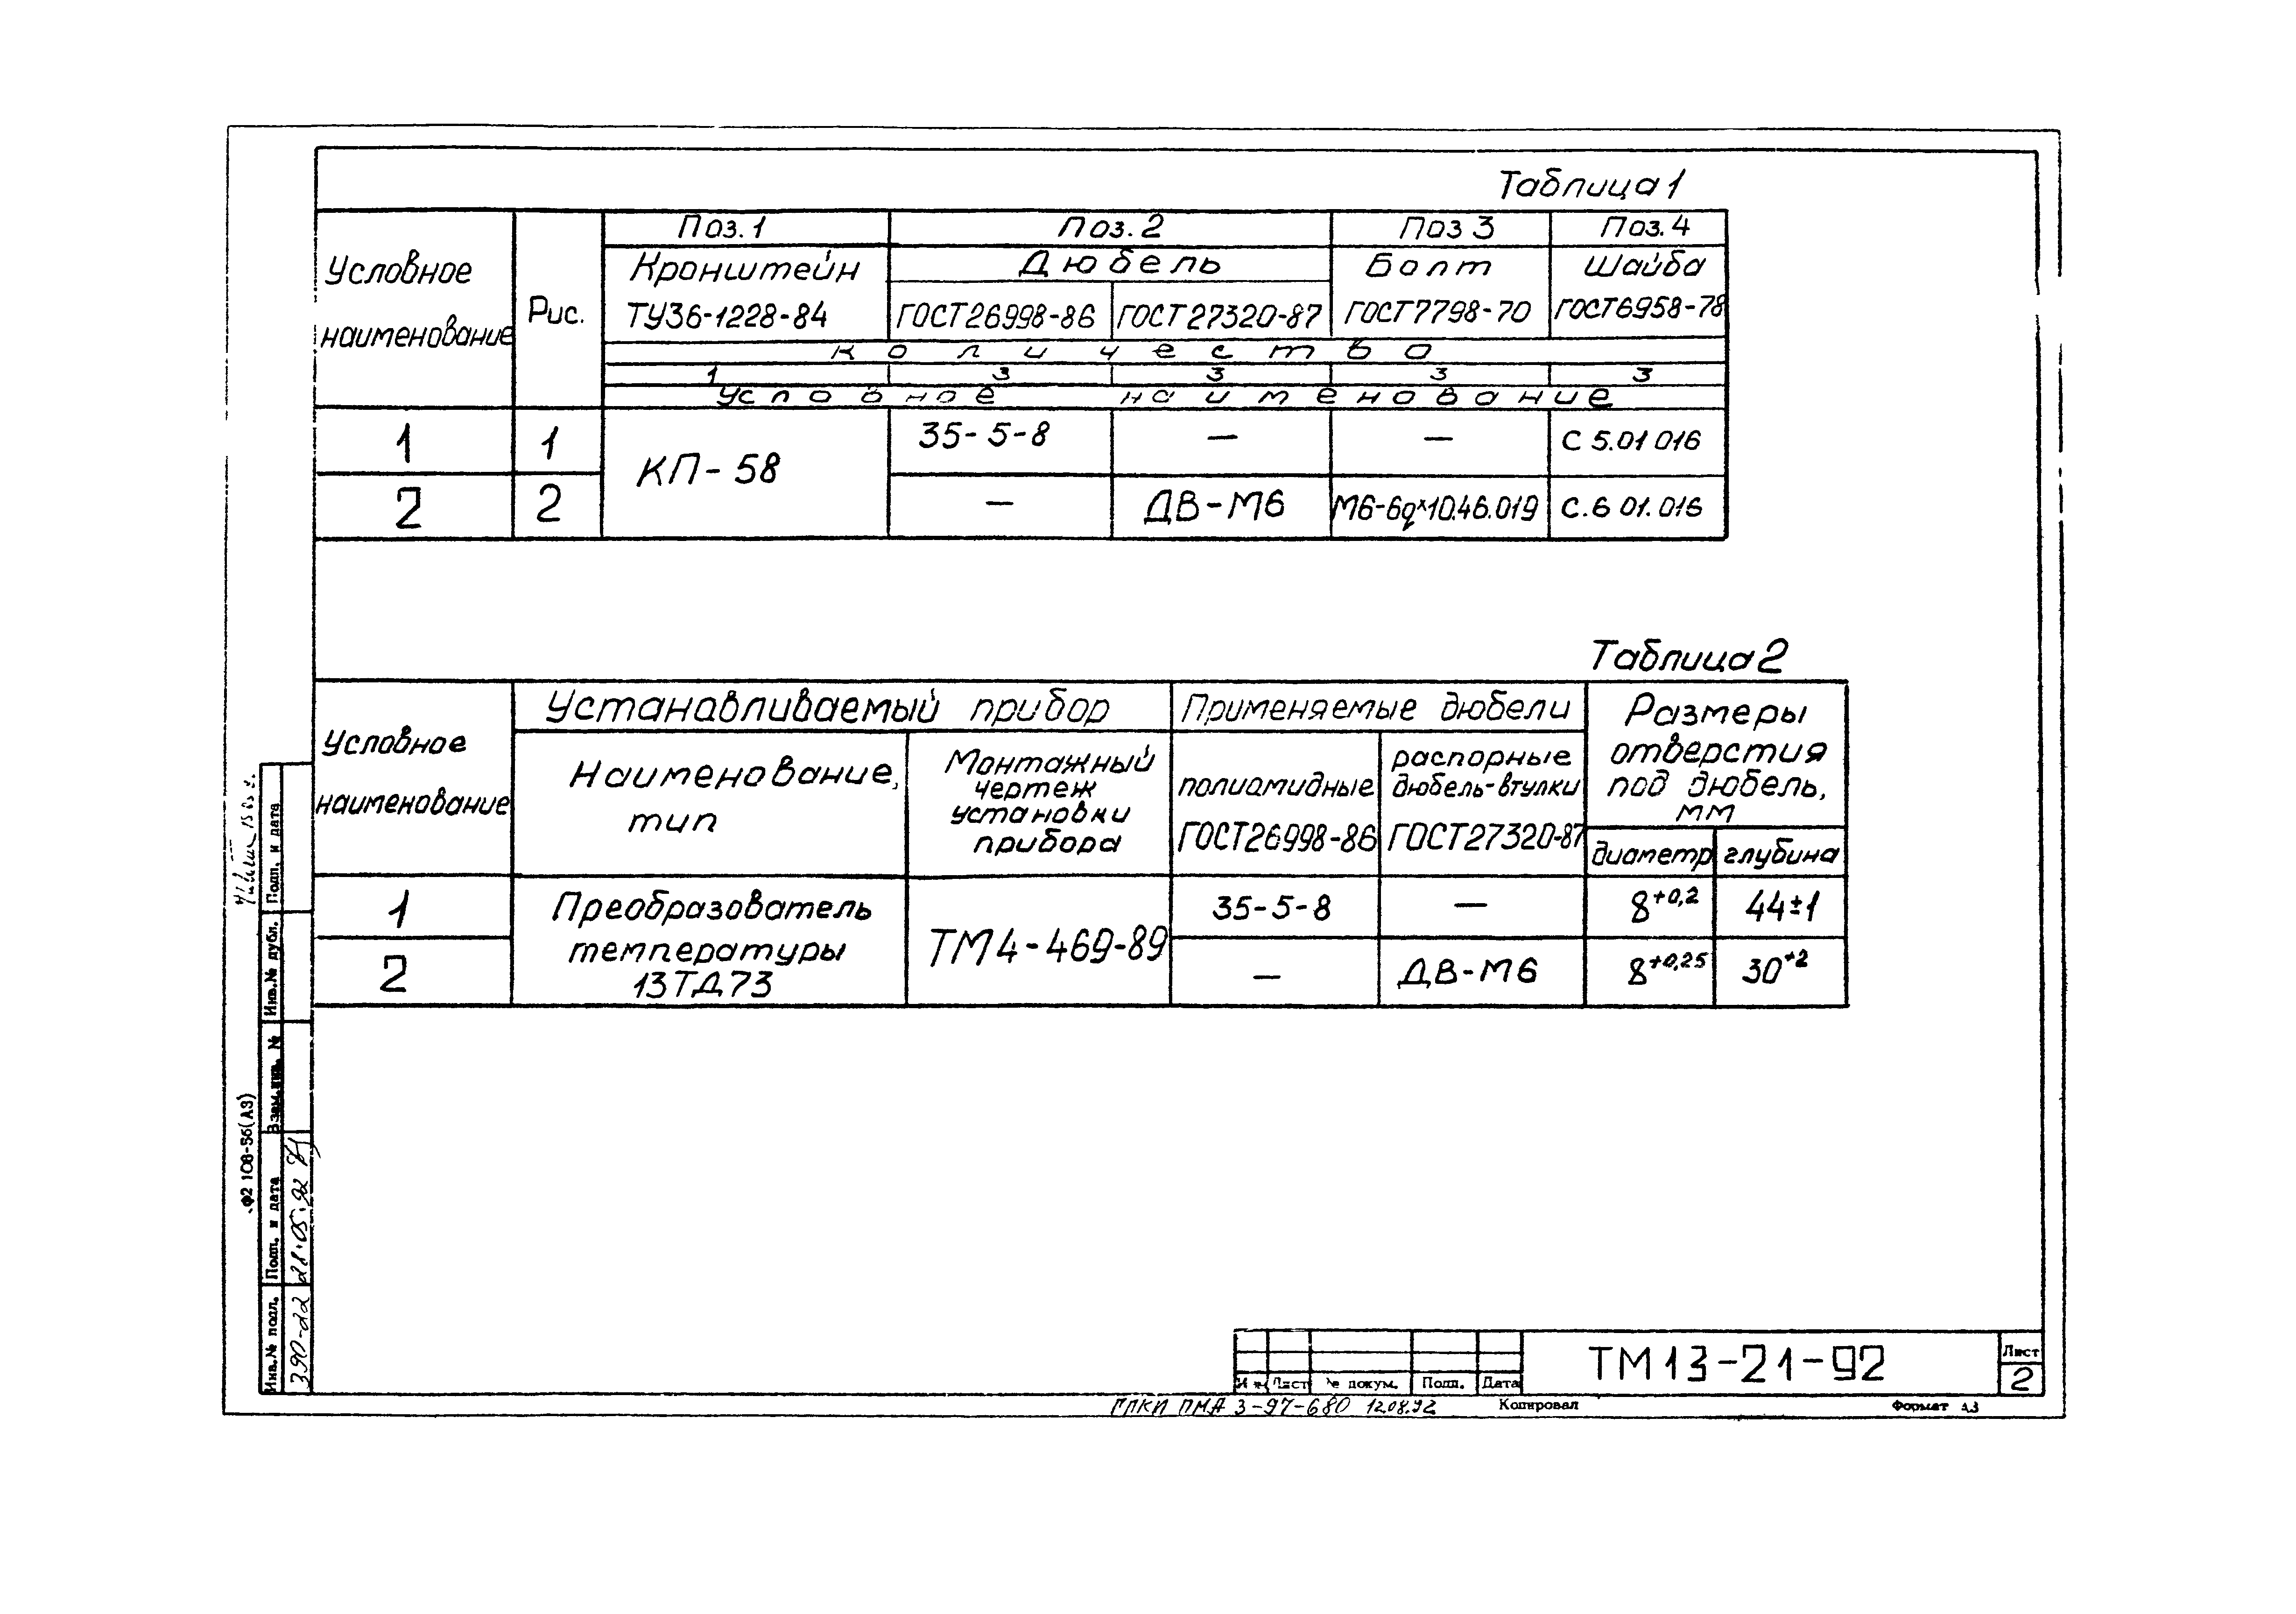 Таблица 1
Условное наименование
Рис.
Поз. 1
Поз. 2
Поз 3
Поз. 4
Кронштейн
ТУ36-1228-84
Дюбель
ГОСТ26998-86
ГОСТ27320-87
Болт
ГОСТ7798-70
Шайба
ГОСТ6958-78
Количество
1 3 3 3 3
Условное наименование
1 1 КП-58 35-5-8 — — С 5.01 016
2 2 — ДВ-М6 М6-6qx10.46.019 С.6 01.016
Таблица 2
Условное
наименование
Устанавливаемый прибор
Наименование,
тип
Монтажный
чертеж
установки
прибора
Применяемые дюбели
полиамидные
ГОСТ26998-86
распорные
дюбель-втулки
ГОСТ27320-87
Размеры
отверстия
под дюбель,
мм
диаметр глубина
1
2
Преобразователь
температуры
13ТД73
ТМ4-469-89
35-5-8 — 8+0,2 44±1
— ДВ-М6 8+0,25 30+2
Подп. и дата
Инв.№ дубл.
Взам.инв. №
Подп. и дата
21.05.92
Инв.№ подл.
390-22
Ф2 108-5б(А3)
Лист № докум. Подп. Дата
ТМ13-21-92
Лист
2
ГПКИ ПМА 3-97-680 12.08.92
Копировал
Формат А3